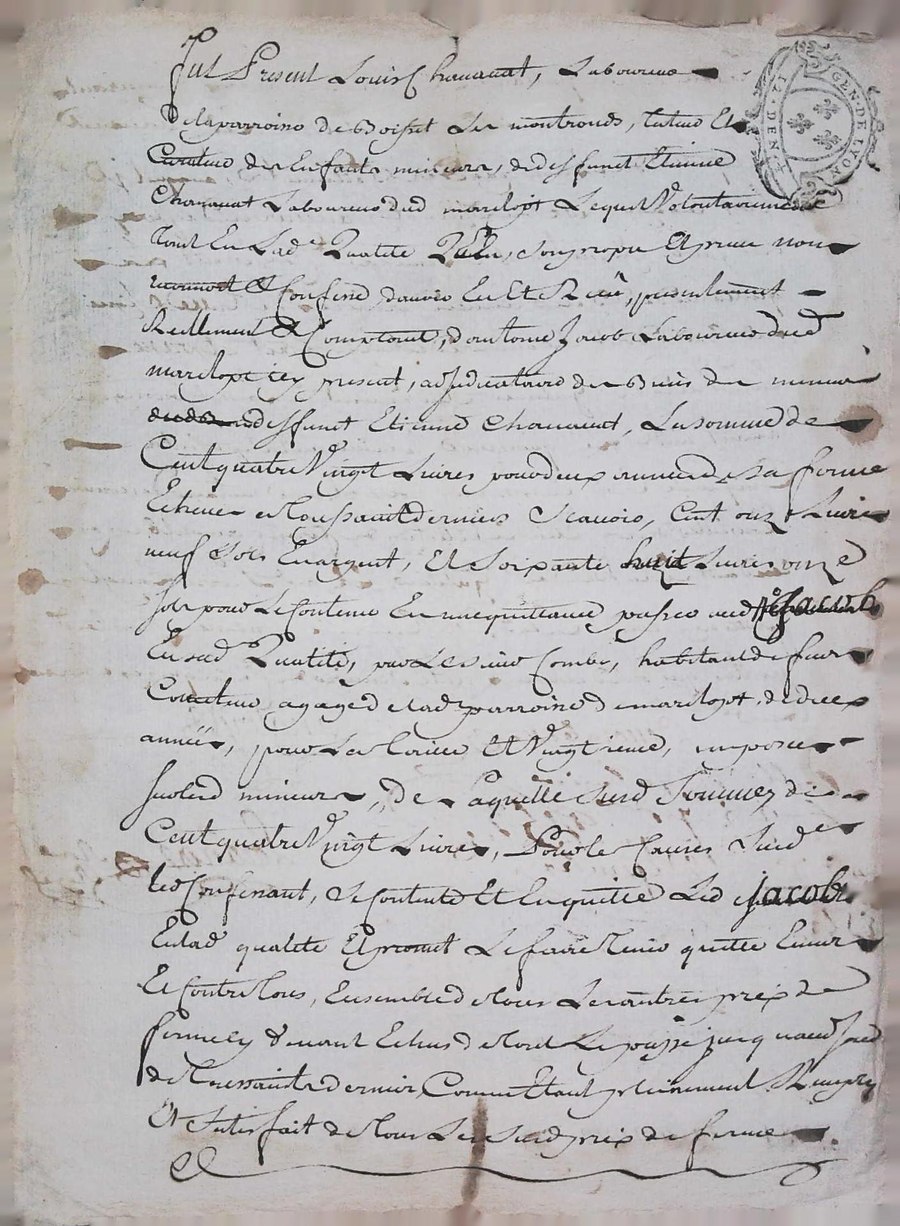 Fut Present Louis Chavanat, Laboureur
GEN·DE LYON
Delaparroine de Boisset Les montronds, tuteur Et
Curateur des Enfants mineurs, de deffunct Etienne
Chavanat Laboureur dud marclopt Lequel Volontairement
tant En Lad.e Qualité Quen, Son propre Et privé nom
reconnoit & Confesse d'avoir Eu Et Reçû, presentement
Reellement & Comptant, d'antoine Jacob Laboureur dud
marclopt icy present, adjudicataire des Biens des mineurs
dud deffunct Etienne Chavanat, La somme de
Cent quatre Vingt Livres pour deux années de sa ferme
Echeues a Toussaint dernier Scavoir, Cent onze Livres
neuf sols En argent, Et Soixante huit Livres onze
sols pour Le Contenu En une quittance passée aud Jacob
En sad Qualité, par Le sieur Combe, habitant de
de lad parroine de marclopt, de deux
années, pour La taille Et Vingtieme, imposés
sur lesd mineurs, De Laquelle susd Somme, de
Cent quatre Vingt Livres, Pour les Causes Susd
led Confessant, Se Contente Et En quitte Led Jacob
En lad qualité Et promet Le faire tenir quitte Envers
Et Contre tous, Ensemble de tous Les autres prix de
ferme cy devant Echus de tout Le passé jusqu'aud jour
de Toussaint dernier, Comme Etant pleinement Remply
Et Satisfait de tous Les Susd prix de ferme